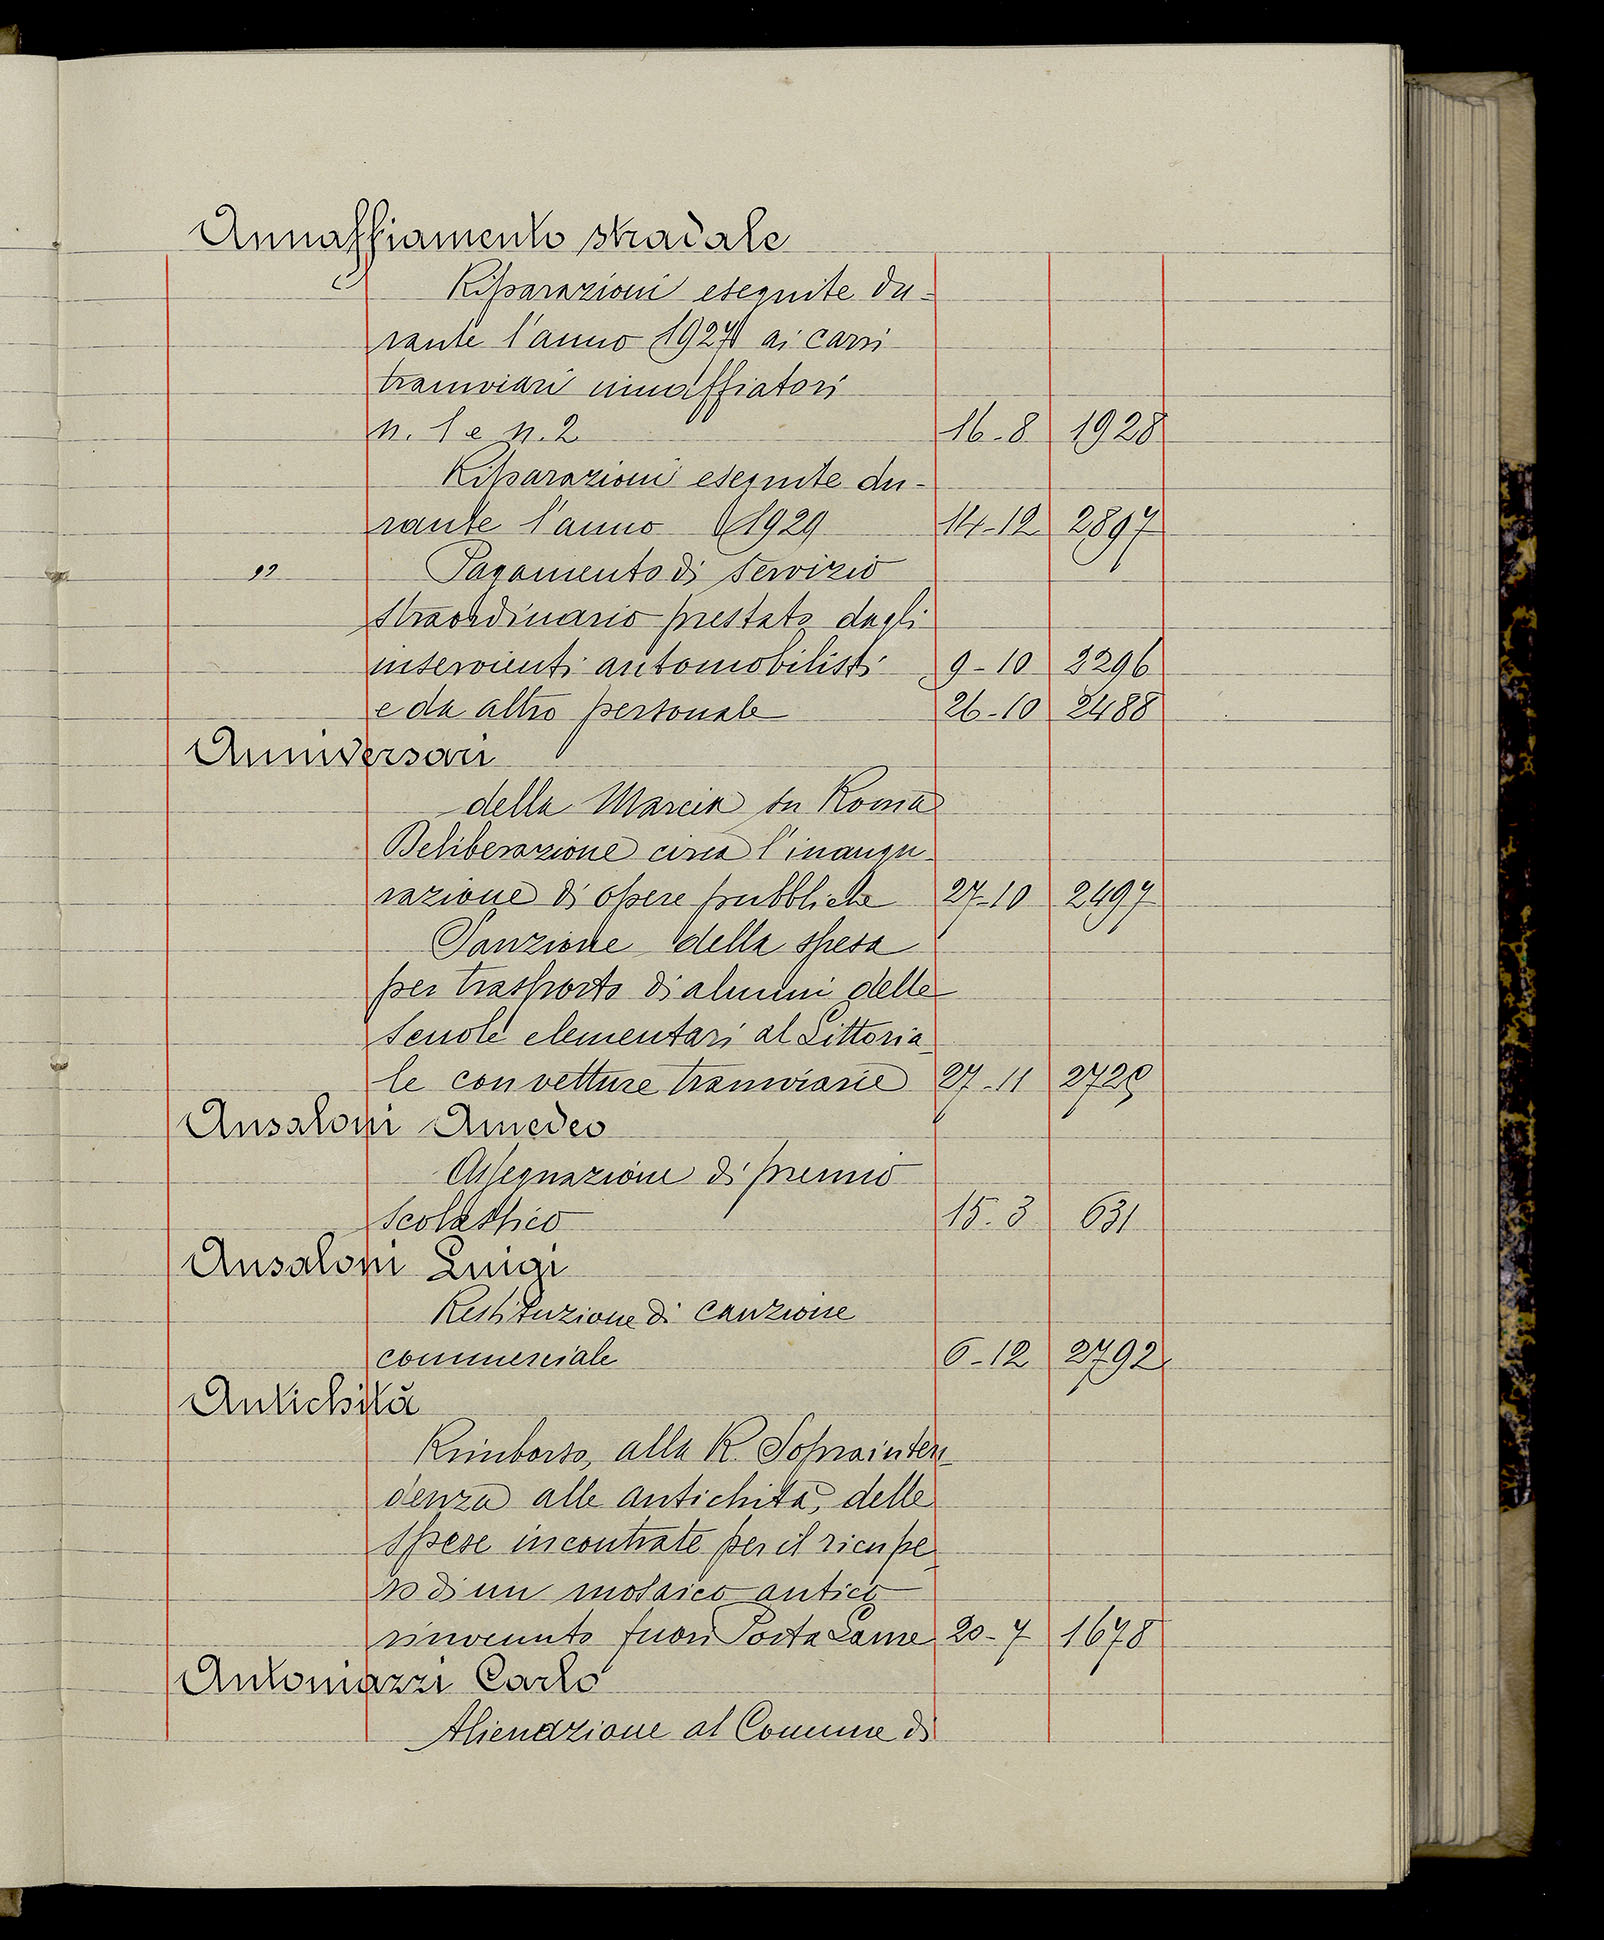 Annaffiamento stradale
Riparazioni eseguite du-
rante l'anno 1927 ai carri
tramviari innaffiatori
n. 1 e n. 2 16-8 1928
Riparazioni eseguite du-
rante l'anno 1929 14-12 2897
" Pagamento di servizio
straordinario prestato dagli
inservienti automobilisti 9-10 2296
e da altro personale 26-10 2488
Anniversari
della Marcia su Roma
Deliberazione circa l'inaugu-
razione di opere pubbliche 27-10 2497
Sanzione della spesa
per trasporto di alunni delle
Scuole elementari al Littoria-
le con vetture tramviarie 27-11 2729
Ansaloni Amedeo
Assegnazione di premio
scolastico 15-3 631
Ansaloni Luigi
Restituzione di cauzione
commerciale 6-12 2792
Antichità
Rimborso, alla R. Soprainten-
denza alle antichità, delle
spese incontrate per il ricupe-
ro di un mosaico antico
rinvenuto fuori Porta Lame 20-7 1678
Antoniazzi Carlo
Alienazione al Comune di